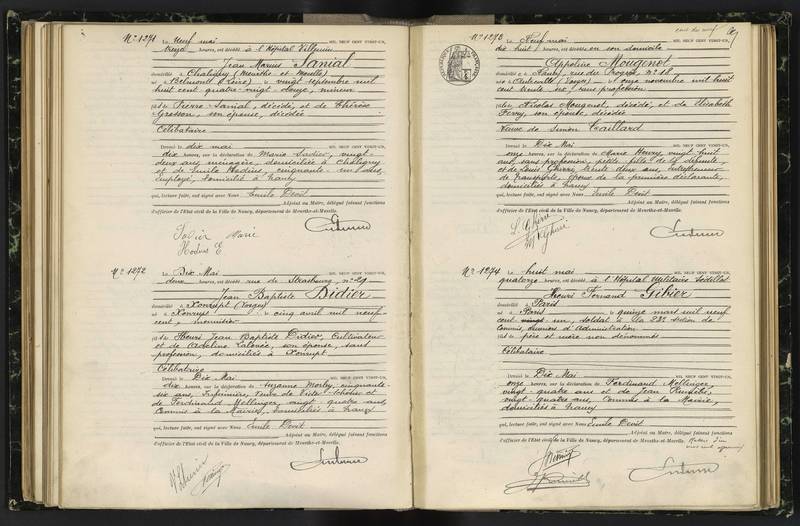 N° 1271 Le Neuf mai MIL NEUF CENT VINGT-UN,
treize heures, est décédé à l'Hôpital Villemin
Jean Marius Sanial
domicilié à Chaligny (Meurthe et Moselle)
né à Belmont (Loire) le vingt septembre mil
huit cent quatre-vingt-douze, mineur
fils de Pierre Sanial, décédé, et de Thérèse
son épouse, décédée
Célibataire
Dressé le dix mai MIL NEUF CENT VINGT-UN,
dix heures, sur la déclaration de Marie vingt-
deux ans, ménagère, domiciliée à Chaligny
et de Emile Hodius, cinquante-un ans,
employé, domicilié à Nancy
qui, lecture faite, ont signé avec Nous Emile Devit
Adjoint au Maire, délégué faisant fonctions
d'officier de l'Etat civil de la Ville de Nancy, département de Meurthe-et-Moselle.
Marie
Hodius E
N° 1272 Le Dix Mai MIL NEUF CENT VINGT-UN,
deux heures, est décédé rue de Strasbourg, n° 29
Jean Baptiste Didier
domicilié à Xonrupt (Vosges)
né à Xonrupt le cinq avril mil neuf
cent, menuisier
fils de Jean Baptiste Didier, Cultivateur
et de Adeline son épouse, sans
profession, domiciliés à Xonrupt
Célibataire
Dressé le Dix Mai MIL NEUF CENT VINGT-UN,
dix heures, sur la déclaration de Suzanne Morley, cinquante-
six ans, Infirmière, Veuve de Victor
et de Ferdinand Mellinger, vingt-quatre ans,
Commis à la Mairie, domiciliés à Nancy
qui, lecture faite, ont signé avec Nous Emile Devit
Adjoint au Maire, délégué faisant fonctions
d'officier de l'Etat civil de la Ville de Nancy, département de Meurthe-et-Moselle.
N° 1273 Le Neuf mai MIL NEUF CENT VINGT-UN,
dix huit heures, est décédée en son domicile
Appoline Mougenot
domiciliée à Nancy, rue du Progrès N° 18
née à (Vosges) le onze novembre mil huit
cent trente six, sans profession
fille de Nicolas Mougenot, décédé, et de Elisabeth
Ferry, son épouse, décédée
Veuve de Simon Taillard
Dressé le Dix Mai MIL NEUF CENT VINGT-UN,
onze heures, sur la déclaration de Marie Henry, vingt huit
ans, sans profession, petite-fille de la défunte,
et de Louis trente deux ans, entrepreneur
de transports, époux de la première déclarante,
domiciliés à Nancy
qui, lecture faite, ont signé avec Nous Emile Devit
Adjoint au Maire, délégué faisant fonctions
d'officier de l'Etat civil de la Ville de Nancy, département de Meurthe-et-Moselle.
N° 1274 Le huit mai MIL NEUF CENT VINGT-UN,
quatorze heures, est décédé à l'Hôpital Militaire Sédillot
Henri Fernand Gibier
domicilié à Paris
né à Paris le quinze mars mil neuf
cent vingt un, soldat à la 23e section de
Commis ouvriers d'Administration
fils de père et mère non dénommés
Célibataire
Dressé le Dix Mai MIL NEUF CENT VINGT-UN,
onze heures, sur la déclaration de Ferdinand Mellinger,
vingt-quatre ans et de Jean
vingt-quatre ans, Commis à la Mairie,
domiciliés à Nancy
qui, lecture faite, ont signé avec Nous Emile Devit
Adjoint au Maire, délégué faisant fonctions
d'officier de l'Etat civil de la Ville de Nancy, département de Meurthe-et-Moselle.